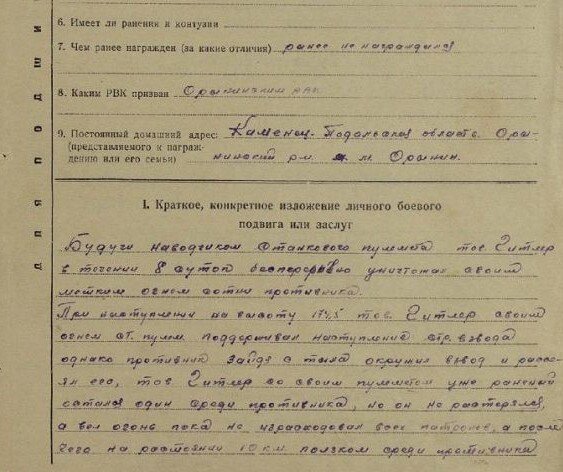 6. Имеет ли ранения и контузии
7. Чем ранее награжден (за какие отличия) ранее не награждался
8. Каким РВК призван Орынинским рвк
9. Постоянный домашний адрес: Каменец-Подольская область Оры-
(представляемого к награж- нинский р-н. м. Орынин.
дению или его семьи)
I. Краткое, конкретное изложение личного боевого
подвига или заслуг
Будучи наводчиком станкового пулемета тов. Гитлер
в течении 8 суток беспрерывно уничтожал своим
метким огнем сотни противника.
При наступлении на высоту 174,5 тов. Гитлер своим
огнем ст. пулем. поддерживал наступление стр. взвода
однако противник зайдя с тыла окружил взвод и рассе-
ял его, тов Гитлер со своим пулеметом уже раненый
остался один среди противника, но он не растерялся,
а вел огонь пока не израсходовал всех патронов, а после
чего на расстоянии 10 км ползком среди противника
для подши